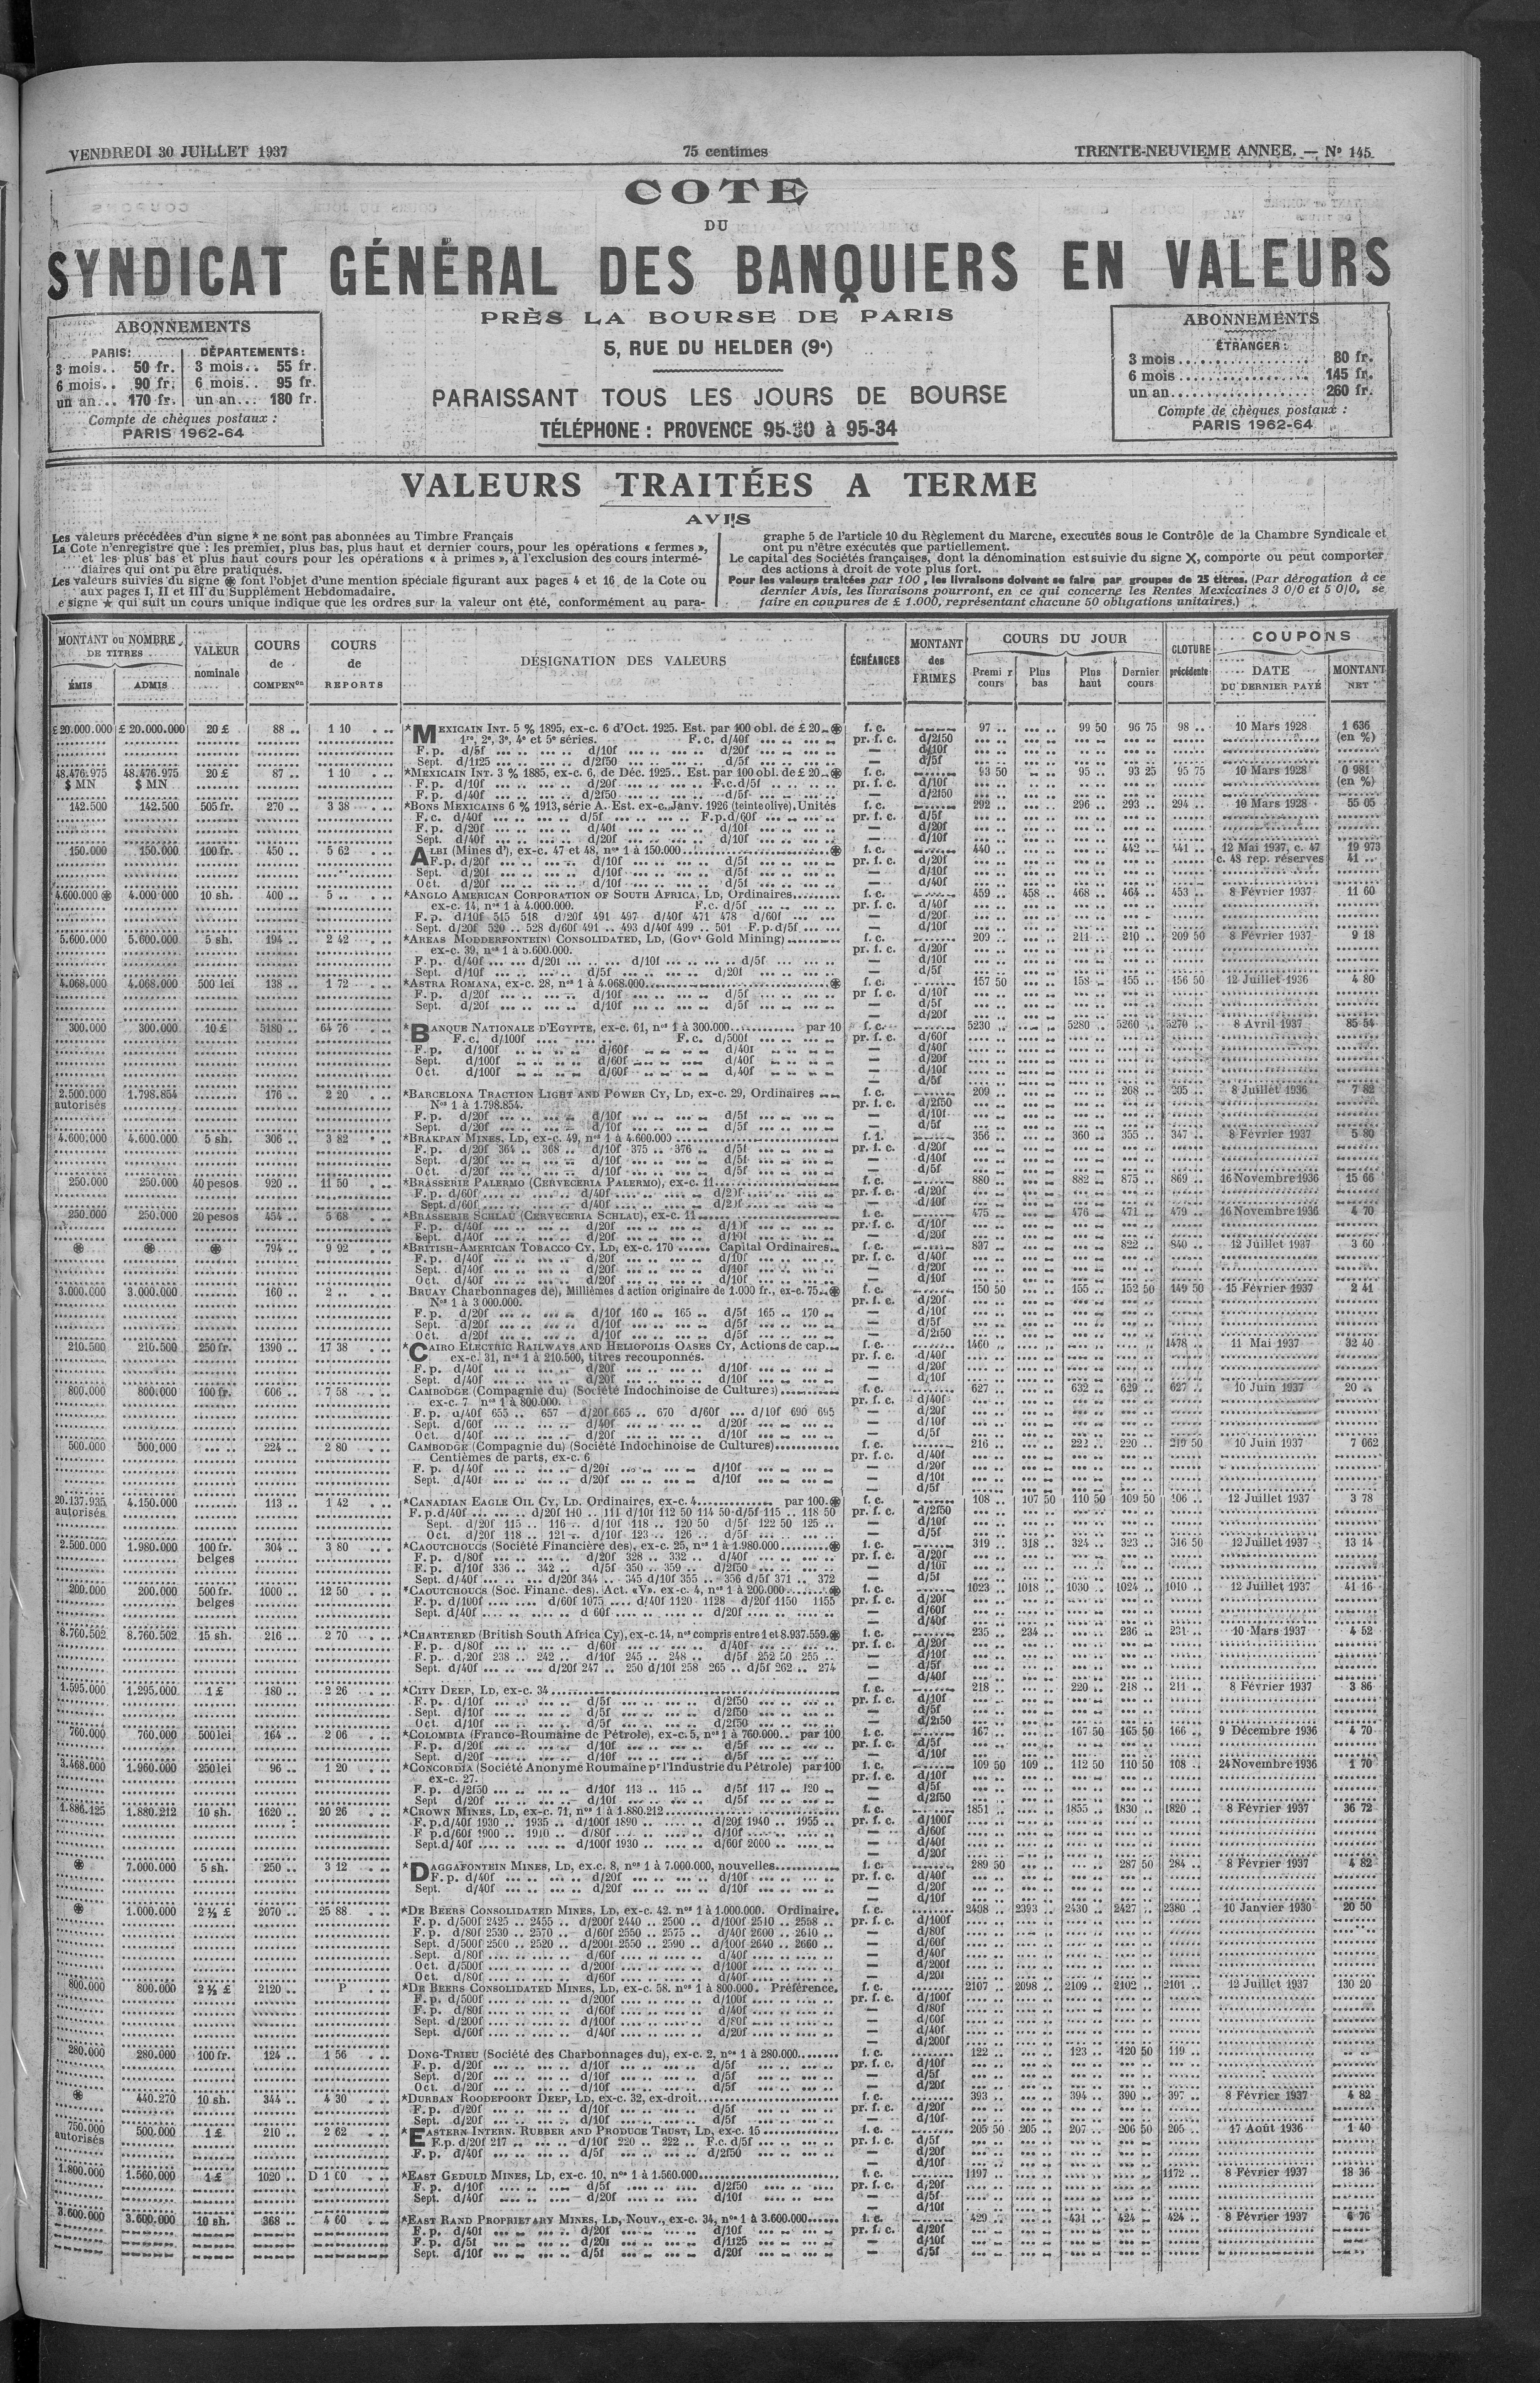 VENDREDI 30 JUILLET 1937
75 centimes
TRENTE-NEUVIEME ANNEE. — Nº 145
COTE
DU
SYNDICAT GÉNÉRAL DES BANQUIERS EN VALEURS
PRÈS LA BOURSE DE PARIS
5, RUE DU HELDER (9e)
PARAISSANT TOUS LES JOURS DE BOURSE
TÉLÉPHONE : PROVENCE 95-30 à 95-34
ABONNEMENTS
PARIS: DÉPARTEMENTS:
3 mois.. 50 fr. 3 mois.. 55 fr.
6 mois.. 90 fr. 6 mois.. 95 fr.
un an... 170 fr. un an... 180 fr.
Compte de chèques postaux :
PARIS 1962-64
ABONNEMENTS
ÉTRANGER :
3 mois 80 fr.
6 mois 145 fr.
un an 260 fr.
Compte de chèques postaux :
PARIS 1962-64
VALEURS TRAITÉES A TERME
AVIS
Les valeurs précédées d'un signe * ne sont pas abonnées au Timbre Français
La Cote n'enregistre que : les premier, plus bas, plus haut et dernier cours, pour les opérations « fermes »,
et les plus bas et plus haut cours pour les opérations « à primes », à l'exclusion des cours intermé-
diaires qui ont pu être pratiqués.
Les valeurs suivies du signe ⊛ font l'objet d'une mention spéciale figurant aux pages 4 et 16 de la Cote ou
aux pages I, II et III du Supplément Hebdomadaire.
e signe ★ qui suit un cours unique indique que les ordres sur la valeur ont été, conformément au para-
graphe 5 de l'article 10 du Règlement du Marche, executés sous le Contrôle de la Chambre Syndicale et
ont pu n'être exécutés que partiellement.
Le capital des Sociétés françaises, dont la dénomination est suivie du signe X, comporte ou peut comporter
des actions à droit de vote plus fort.
Pour les valeurs traitées par 100, les livraisons doivent se faire par groupes de 25 titres. (Par dérogation à ce
dernier Avis, les livraisons pourront, en ce qui concerne les Rentes Mexicaines 3 0/0 et 5 0/0, se
faire en coupures de £ 1.000, représentant chacune 50 obligations unitaires.)
MONTANT ou NOMBRE DE TITRES
ÉMIS ADMIS
VALEUR nominale
COURS de COMPENon
COURS de REPORTS
DÉSIGNATION DES VALEURS
ÉCHÉANCES
MONTANT des PRIMES
COURS DU JOUR
Premi r cours Plus bas Plus haut Dernier cours
CLOTURE précédente
COUPONS
DATE DU DERNIER PAYÉ MONTANT NET
£ 20.000.000 £ 20.000.000 20 £ 88 .. 1 10 *MEXICAIN INT. 5 % 1895, ex-c. 6 d'Oct. 1925. Est. par 100 obl. de £ 20 ⊛ f. c. 97 .. 99 50 96 75 98 .. 10 Mars 1928 1 636
1re, 2e, 3e, 4e et 5e séries. F. c. d/40f pr. f. c. d/2f50 (en %)
F. p. d/5f d/10f d/20f — d/10f
Sept. d/1f25 d/2f50 d/5f — d/5f
48.476.975 48.476.975 20 £ 87 .. 1 10 *MEXICAIN INT. 3 % 1885, ex-c. 6, de Déc. 1925.. Est. par 100 obl. de £ 20 ⊛ f. c. 93 50 95 .. 93 25 95 75 10 Mars 1928 0 981
$ MN $ MN F. p. d/10f d/20f F.c. d/5f pr. f. c. d/10f (en %)
F. p. d/40f d/2f50 d/5f — d/2f50
142.500 142.500 505 fr. 270 .. 3 38 *BONS MEXICAINS 6 % 1913, série A. Est. ex-c. Janv. 1926 (teinte olive). Unités f. c. 292 .. 296 .. 293 .. 294 .. 10 Mars 1928 55 05
F. c. d/40f d/5f F.p. d/60f pr. f. c. d/5f
F. p. d/20f d/40f d/10f — d/20f
Sept. d/40f d/20f d/10f — d/10f
150.000 150.000 100 fr. 450 .. 5 62 ALBI (Mines d'), ex-c. 47 et 48, nos 1 à 150.000 ⊛ f. c. 440 .. 442 .. 441 .. 12 Mai 1937, c. 47 19 973
F. p. d/20f d/10f d/5f pr. f. c. d/20f c. 48 rep. réserves 41 ..
Sept. d/20f d/10f d/5f — d/10f
Oct. d/20f d/10f d/5f — d/40f
4.600.000 ⊛ 4.000.000 10 sh. 400 .. 5 .. *ANGLO AMERICAN CORPORATION OF SOUTH AFRICA, LD, Ordinaires f. c. 459 .. 458 .. 468 .. 464 .. 453 .. 8 Février 1937 11 60
ex-c. 14, nos 1 à 4.000.000. F.c. d/5f pr. f. c. d/40f
F. p. d/10f 515 518 d/20f 491 497 d/40f 471 478 d/60f — d/20f
Sept. d/20f 520 .. 528 d/60f 491 .. 493 d/40f 499 .. 501 F.p. d/5f — d/10f
5.600.000 5.600.000 5 sh. 194 .. 2 42 *AREAS MODDERFONTEIN) CONSOLIDATED, LD, (Govt Gold Mining) f. c. 209 .. 211 .. 210 .. 209 50 8 Février 1937 9 18
ex-c. 39, nos 1 à 5.600.000. pr. f. c. d/20f
F. p. d/40f d/20f d/10f d/5f — d/10f
Sept. d/10f d/5f d/20f — d/5f
4.068.000 4.068.000 500 lei 138 .. 1 72 *ASTRA ROMANA, ex-c. 28, nos 1 à 4.068.000 ⊛ f. c. 157 50 158 .. 155 .. 156 50 12 Juillet 1936 4 80
F. p. d/20f d/10f d/5f pr f. c. d/10f
Sept. d/20f d/10f d/5f — d/5f
— d/20f
300.000 300.000 10 £ 5180 .. 64 76 *BANQUE NATIONALE D'EGYPTE, ex-c. 61, nos 1 à 300.000 par 10 f. c. 5230 .. 5280 .. 5260 .. 5270 .. 8 Avril 1937 85 54
F. c. d/100f F. c. d/500f pr. f. c. d/60f
F. p. d/100f d/60f d/40f — d/40f
Sept. d/100f d/60f d/40f — d/20f
Oct. d/100f d/60f d/40f — d/10f
— d/5f
2.500.000 1.798.854 176 .. 2 20 *BARCELONA TRACTION LIGHT AND POWER CY, LD, ex-c. 29, Ordinaires f. c. 209 .. 268 .. 8 Juillet 1936 7 82
autorisés Nos 1 à 1.798.854. pr. f. c. d/2f50
F. p. d/20f d/10f d/5f — d/10f
Sept. d/20f d/10f d/5f — d/5f
4.600.000 4.600.000 5 sh. 306 .. 3 82 *BRAKPAN MINES, LD, ex-c. 49, nos 1 à 4.600.000 356 .. 360 .. 355 .. 347 .. 8 Février 1937 5 80
F. p. d/20f 364 .. 368 .. d/10f 375 .. 376 .. d/5f pr. f. c. d/20f
Sept. d/20f d/10f d/5f — d/40f
Oct. d/20f d/10f d/5f — d/5f
250.000 250.000 40 pesos 920 .. 11 50 *BRASSERIE PALERMO (CERVECERIA PALERMO), ex-c. 11 f. c. 880 .. 882 .. 875 .. 869 .. 16 Novembre 1936 15 66
F. p. d/60f d/40f pr. f. c. d/20f
Sept. d/60f d/40f — d/10f
250.000 250.000 20 pesos 454 .. 5 68 *BRASSERIE SCHLAU (CERVECERIA SCHLAU), ex-c. 11 f. c. 475 .. 476 .. 471 .. 479 .. 16 Novembre 1936 4 70
F. p. d/40f d/20f pr. f. c. d/10f
Sept. d/40f d/20f d/10f — d/20f
⊛ ⊛ ⊛ 794 .. 9 92 *BRITISH-AMERICAN TOBACCO CY, LD, ex-c. 170 Capital Ordinaires f. c. 837 .. 822 .. 840 .. 12 Juillet 1937 3 60
F. p. d/40f d/20f d/10f pr. f. c. d/40f
Sept. d/40f d/20f d/10f — d/20f
Oct. d/40f d/20f d/10f — d/10f
3.000.000 3.000.000 160 .. 2 .. BRUAY Charbonnages de), Millièmes d action originaire de 1.000 fr., ex-c. 75 ⊛ f. c. 150 50 155 .. 152 50 149 50 15 Février 1937 2 41
Nos 1 à 3 000.000. pr. f. c. d/20f
F. p. d/20f d/10f 160 .. 165 .. d/5f 165 .. 170 .. — d/10f
Sept. d/20f d/10f d/5f — d/5f
Oct. d/20f d/10f d/5f — d/2f50
210.500 210.500 250 fr. 1390 .. 17 38 *CAIRO ELECTRIC RAILWAYS AND HELIOPOLIS OASES CY, Actions de cap. f. c. 1460 .. 1478 .. 11 Mai 1937 32 40
ex-c. 31, nos 1 à 210.500, titres recouponnés. pr. f. c. d/40f
F. p. d/40f d/20f d/10f — d/20f
Sept. d/40f d/20f d/10f — d/10f
800.000 800.000 100 fr. 606 .. 7 58 CAMBODGE (Compagnie du) (Société Indochinoise de Cultures) f. c. 627 .. 632 .. 629 .. 627 .. 10 Juin 1937 20 ..
ex-c. 7 nos 1 à 800.000. pr. f. c. d/40f
F. p. d/40f 655 .. 657 d/20f 665 .. 670 d/60f d/10f 690 695 — d/20f
Sept. d/60f d/40f d/20f — d/10f
Oct. d/40f d/20f d/10f — d/5f
500.000 500.000 224 .. 2 80 CAMBODGE (Compagnie du) (Société Indochinoise de Cultures) f. c. 216 .. 222 .. 220 .. 219 50 10 Juin 1937 7 062
Centièmes de parts, ex-c. 6 pr. f. c. d/40f
F. p. d/40f d/20f d/10f — d/20f
Sept. d/40f d/20f d/10f — d/10f
— d/5f
20.137.935 4.150.000 113 .. 1 42 *CANADIAN EAGLE OIL CY, LD, Ordinaires, ex-c. 4 par 100 ⊛ f. c. 108 .. 107 50 110 50 109 50 106 .. 12 Juillet 1937 3 78
autorisés F. p. d/40f d/20f 110 .. 111 d/10f 112 50 114 50 d/5f 115 .. 118 50 pr. f. c. d/2f50
Sept. d/20f 115 .. 116 .. d/10f 118 .. 120 50 d/5f 122 50 125 .. — d/10f
Oct. d/20f 118 .. 121 .. d/10f 123 .. 126 .. d/5f — d/5f
2.500.000 1.980.000 100 fr. 304 .. 3 80 *CAOUTCHOUCS (Société Financière des), ex-c. 25, nos 1 à 1.980.000 ⊛ f. c. 319 .. 318 .. 324 .. 323 .. 316 50 12 Juillet 1937 13 14
belges F. p. d/80f d/20f 328 .. 332 .. d/40f pr. f. c. d/20f
F. p. d/10f 336 .. 342 .. d/5f 350 .. 359 .. d/2f50 — d/10f
Sept. d/40f d/20f 344 .. 345 d/10f 355 .. 356 d/5f 371 .. 372 — d/5f
200.000 200.000 500 fr. 1000 .. 12 50 *CAOUTCHOUCS (Soc. Financ. des). Act. «V». ex-c. 4, nos 1 à 200.000 ⊛ f. c. 1023 .. 1018 .. 1030 .. 1024 .. 1010 .. 12 Juillet 1937 41 16
belges F. p. d/100f d/60f 1075 d/40f 1120 1128 d/20f 1150 1155 pr. f. c. d/20f
Sept. d/40f d 60f d/20f — d/60f
— d/40f
8.760.502 8.760.502 15 sh. 216 .. 2 70 *CHARTERED (British South Africa Cy), ex-c. 14, nos compris entre 1 et 8.937.559 ⊛ f. c. 235 .. 234 .. 236 .. 231 .. 10 Mars 1937 4 52
F. p. d/80f d/60f d/40f pr. f. c. d/20f
F. p. d/20f 238 .. 242 .. d/10f 245 .. 248 .. d/5f 252 50 255 .. — d/10f
Sept. d/40f d/20f 247 .. 250 d/10f 258 265 .. d/5f 262 .. 274 — d/5f
— d/40f
1.595.000 1.295.000 1 £ 180 .. 2 26 *CITY DEEP, LD, ex-c. 34 f. c. 218 .. 220 .. 218 .. 211 .. 8 Février 1937 3 86
F. p. d/10f d/5f d/2f50 pr. f. c. d/10f
Sept. d/10f d/5f d/2f50 — d/5f
Oct. d/10f d/5f d/2f50 — d/2f50
760.000 760.000 500 lei 164 .. 2 06 *COLOMBIA (Franco-Roumaine de Pétrole), ex-c. 5, nos 1 à 760.000.. par 100 f. c. 167 .. 167 50 165 50 166 .. 9 Décembre 1936 4 70
F. p. d/20f d/10f d/5f pr. f. c. d/5f
Sept. d/20f d/10f d/5f — d/10f
3.468.000 1.960.000 250 lei 96 .. 1 20 *CONCORDIA (Société Anonyme Roumaine pr l'Industrie du Pétrole) par 100 f. c. 109 50 109 .. 112 50 110 50 108 .. 24 Novembre 1936 1 70
ex-c. 27. pr. f. c. d/10f
F. p. d/2f50 d/10f 113 .. 115 .. d/5f 117 .. 120 .. — d/5f
Sept d/20f d/10f d/5f — d/2f50
1.886.125 1.880.212 10 sh. 1620 .. 20 26 *CROWN MINES, LD, ex-c. 71, nos 1 à 1.880.212 f. c. 1851 .. 1855 .. 1830 .. 1820 .. 8 Février 1937 36 72
F. p. d/40f 1930 .. 1935 .. d/100f 1890 d/20f 1940 .. 1955 .. pr. f. c. d/100f
F p. d/60f 1900 .. 1910 .. d/80f d/10f — d/60f
Sept. d/40f d/100f 1930 d/60f 2000 — d/40f
— d/20f
⊛ 7.000.000 5 sh. 250 .. 3 12 *DAGGAFONTEIN MINES, LD, ex.c. 8, nos 1 à 7.000.000, nouvelles f. c. 289 50 287 50 284 .. 8 Février 1937 4 82
F. p. d/40f d/20f d/10f pr. f. c. d/40f
Sept. d/40f d/20f d/10f — d/20f
— d/10f
⊛ 1.000.000 2 ½ £ 2070 .. 25 88 *DE BEERS CONSOLIDATED MINES, LD, ex-c. 42. nos 1 à 1.000.000. Ordinaire. f. c. 2408 .. 2393 .. 2430 .. 2427 .. 2380 .. 10 Janvier 1930 20 50
F. p. d/500f 2425 .. 2455 .. d/200f 2440 .. 2500 .. d/100f 2510 .. 2558 .. pr. f. c. d/100f
F. p. d/80f 2530 .. 2570 .. d/60f 2550 .. 2575 .. d/40f 2600 .. 2610 .. — d/80f
Sept. d/500f 2500 .. 2520 .. d/200f 2550 .. 2590 .. d/100f 2640 .. 2660 .. — d/60f
Sept. d/80f d/60f d/40f — d/40f
Oct. d/500f d/200f d/100f — d/200f
Oct. d/80f d/60f d/40f — d/20f
800.000 800.000 2 ½ £ 2120 .. P *DE BEERS CONSOLIDATED MINES, LD, ex-c. 58. nos 1 à 800.000. Préférence. f. c. 2107 .. 2098 .. 2109 .. 2102 .. 2101 .. 12 Juillet 1937 130 20
F. p. d/500f d/200f d/100f pr. f. c. d/100f
F. p. d/80f d/60f d/40f — d/80f
Sept. d/200f d/100f d/80f — d/60f
Sept. d/60f d/40f d/20f — d/40f
— d/200f
280.000 280.000 100 fr. 124 .. 1 56 DONG-TRIEU (Société des Charbonnages du), ex-c. 2, nos 1 à 280.000 f. c. 122 .. 123 .. 120 50 119 ..
F. p. d/20f d/10f d/5f pr. f. c. d/10f
Sept. d/20f d/10f d/5f — d/5f
Oct. d/20f d/10f d/5f — d/20f
⊛ 440.270 10 sh. 344 .. 4 30 *DURBAN ROODEPOORT DEEP, LD, ex-c. 32, ex-droit f. c. 393 .. 394 .. 390 .. 397 .. 8 Février 1937 4 82
F. p. d/20f d/10f d/5f pr. f. c. d/20f
Sept. d/20f d/10f d/5f — d/10f
750.000 500.000 1 £ 210 .. 2 62 *EASTERN INTERN. RUBBER AND PRODUCE TRUST, LD, ex-c. 15 f. c. 205 50 205 .. 207 .. 206 50 205 .. 17 Août 1936 1 40
autorisés F. p. d/20f 217 d/10f 220 .. 222 .. F. c. d/5f pr. f. c. d/5f
F. p. d/40f d/5f d/2f50 — d/20f
— d/10f
1.800.000 1.560.000 1 £ 1020 .. D 1 00 *EAST GEDULD MINES, LD, ex-c. 10, nos 1 à 1.560.000 f. c. 1197 .. 1172 .. 8 Février 1937 18 36
F. p. d/10f d/5f d/2f50 pr. f. c. d/20f
Sept. d/40f d/20f d/10f — d/5f
— d/10f
3.600.000 3.600.000 10 sh. 368 .. 4 60 *EAST RAND PROPRIETARY MINES, LD, Nouv., ex-c. 34, nos 1 à 3.600.000 f. c. 429 .. 431 .. 424 .. 424 .. 8 Février 1937 6 76
F. p. d/40f d/20f d/10f pr. f. c. d/20f
F. p. d/5f d/20f d/1f25 — d/10f
Sept. d/10f d/5f d/20f — d/5f